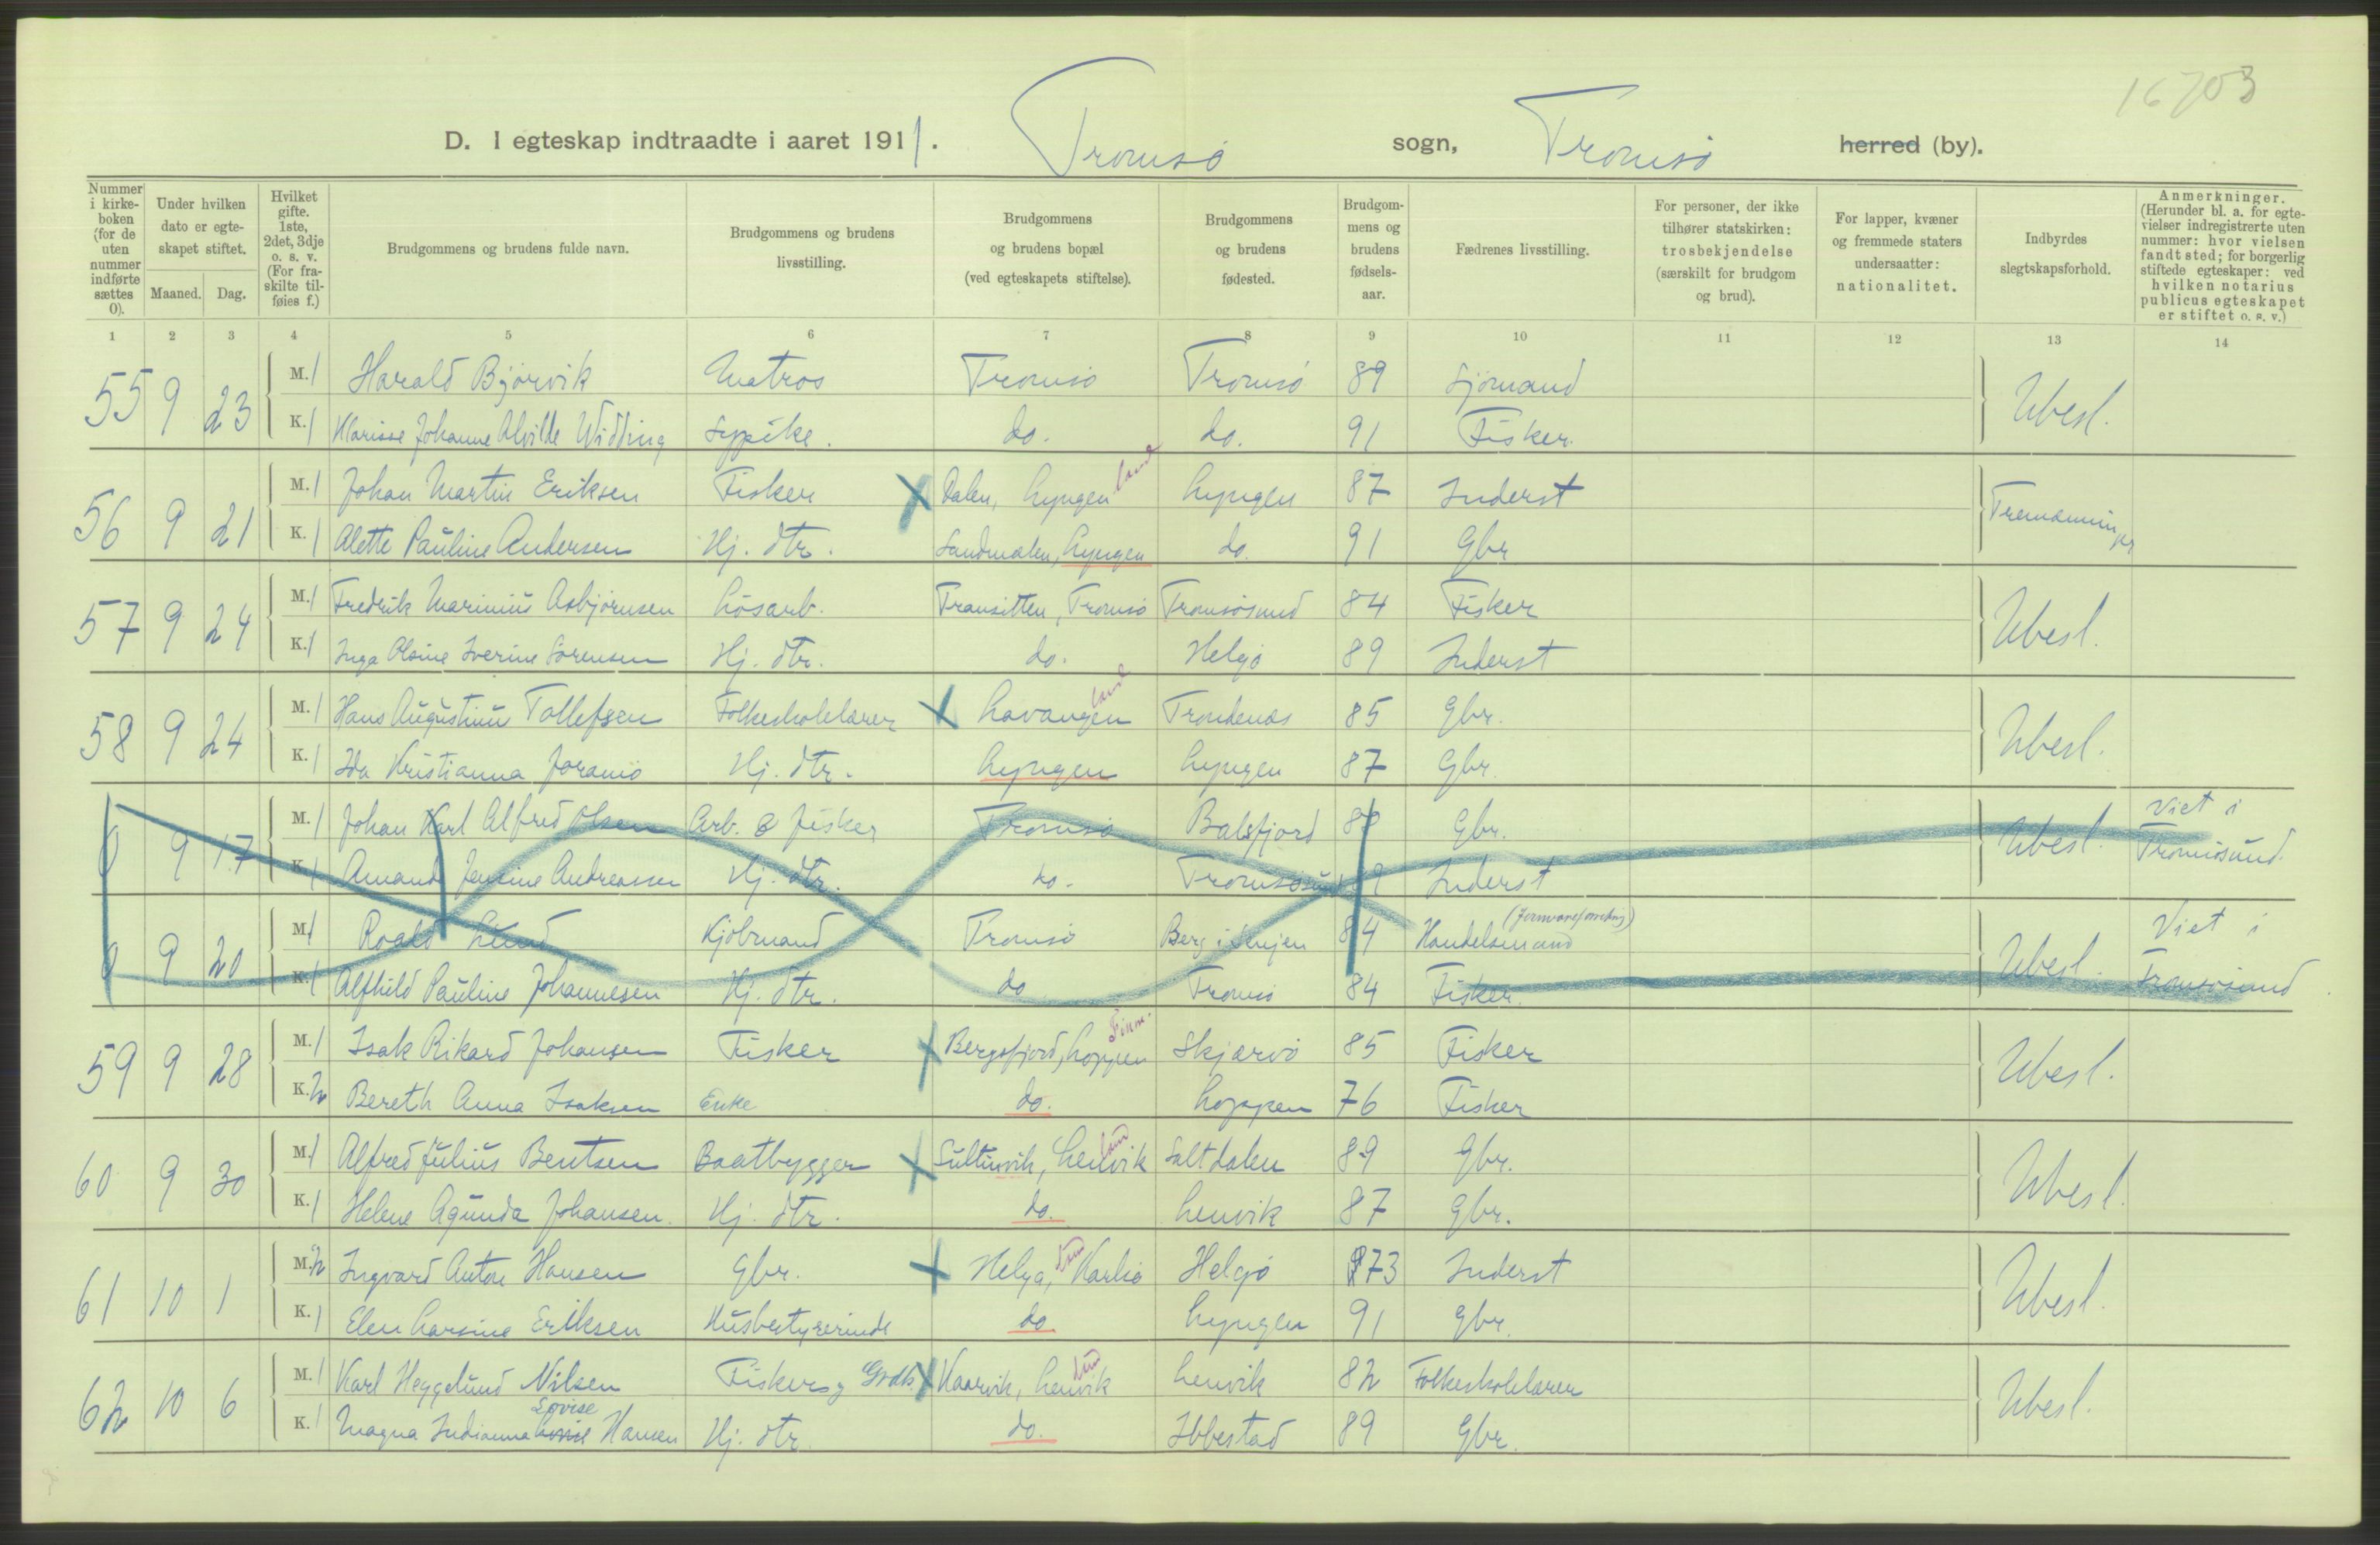 16703
D. I egteskap indtraadte i aaret 1911. Tromsö sogn, Tromsö herred (by).
Nummer i kirkeboken (for de uten nummer indførte sættes 0).
Under hvilken dato er egteskapet stiftet.
Maaned. Dag.
Hvilket gifte. 1ste, 2det, 3dje o. s. v. (For fraskilte tilføies f.)
Brudgommens og brudens fulde navn.
Brudgommens og brudens livsstilling.
Brudgommens og brudens bopæl (ved egteskapets stiftelse).
Brudgommens og brudens fødested.
Brudgommens og brudens fødselsaar.
Fædrenes livsstilling.
For personer, der ikke tilhører statskirken: trosbekjendelse (særskilt for brudgom og brud).
For lapper, kvæner og fremmede staters undersaatter: nationalitet.
Indbyrdes slegtskapsforhold.
Anmerkninger. (Herunder bl. a. for egtevielser indregistrerte uten nummer: hvor vielsen fandt sted; for borgerlig stiftede egteskaper: ved hvilken notarius publicus egteskapet er stiftet o. s. v.)
1 2 3 4 5 6 7 8 9 10 11 12 13 14
55 9 23 M. 1 Harald Bjørvik Matros Tromsö Tromsö 89 Sjömand Ubesl.
K. 1 Klarisse Johanne Alvilde Widding Sypike. do. do. 91 Fisker.
56 9 21 M. 1 Johan Martin Eriksen Fisker Dalen, Lyngen land Lyngen 87 Inderst Tremænninger
K. 1 Alette Pauline Andersen Hj. dtr. Sandmalen, Lyngen do. 91 Gbr
57 9 24 M. 1 Fredrik Marinius Asbjörnsen Lösarb. Transitten, Tromsö Tromsösund 84 Fisker Ubesl.
K. 1 Inga Olsine Iverine Sörensen Hj. dtr. do. Helgö 89 Inderst
58 9 24 M. 1 Hans Augustinus Tollefsen Folkeskolelærer Lavangen land Trondenæs 85 Gbr. Ubesl.
K. 1 Ida Kristianna Joramo Hj. dtr. Lyngen Lyngen 87 Gbr.
0 9 17 M. 1 Johan Karl Alfred Olsen Arb. & Fisker Tromsö Balsfjord Gbr. Ubesl. Viet i Tromsösund.
K. 1 Amanda Jensine Andreassen Hj. dtr. do. Tromsösund Inderst
0 9 20 M. 1 Roald Lund Kjöbmand Tromsö Berg i Senjen 84 Handelsmand Ubesl. Viet i Tromsösund
K. 1 Alfhild Pauline Johannesen Hj. dtr. do Tromsö 84 Fisker.
59 9 28 M. 1 Isak Rikard Johansen Fisker Bergsfjord, Loppen Finm. Skjærvö 85 Fisker Ubesl.
K. 2 Bereth Anna Isaksen Enke do. Loppen 76 Fisker
60 9 30 M. 1 Alfred Julius Bentsen Baatbygger Sultinvik, Lenvik land Saltdalen 89 Gbr. Ubesl.
K. 1 Helene Agunda Johansen. Hj. dtr. do. Lenvik 87 Gbr.
61 10 1 M. 2 Ingvard Anton Hansen Gbr. Helgö, Karlsö Helgö 73 Inderst Ubesl.
K. 1 Elen Larsine Eriksen Husbestyrerinde do. Lyngen 91 Gbr.
62 10 6 M. 1 Karl Heggelund Nilsen Fisker og Grdb Kaarvik, Lenvik Lenvik 82 Folkeskolelærer Ubesl.
K. 1 Magna Indianna Lovise Hansen Hj. dtr do. Ibbestad 89 Gbr.